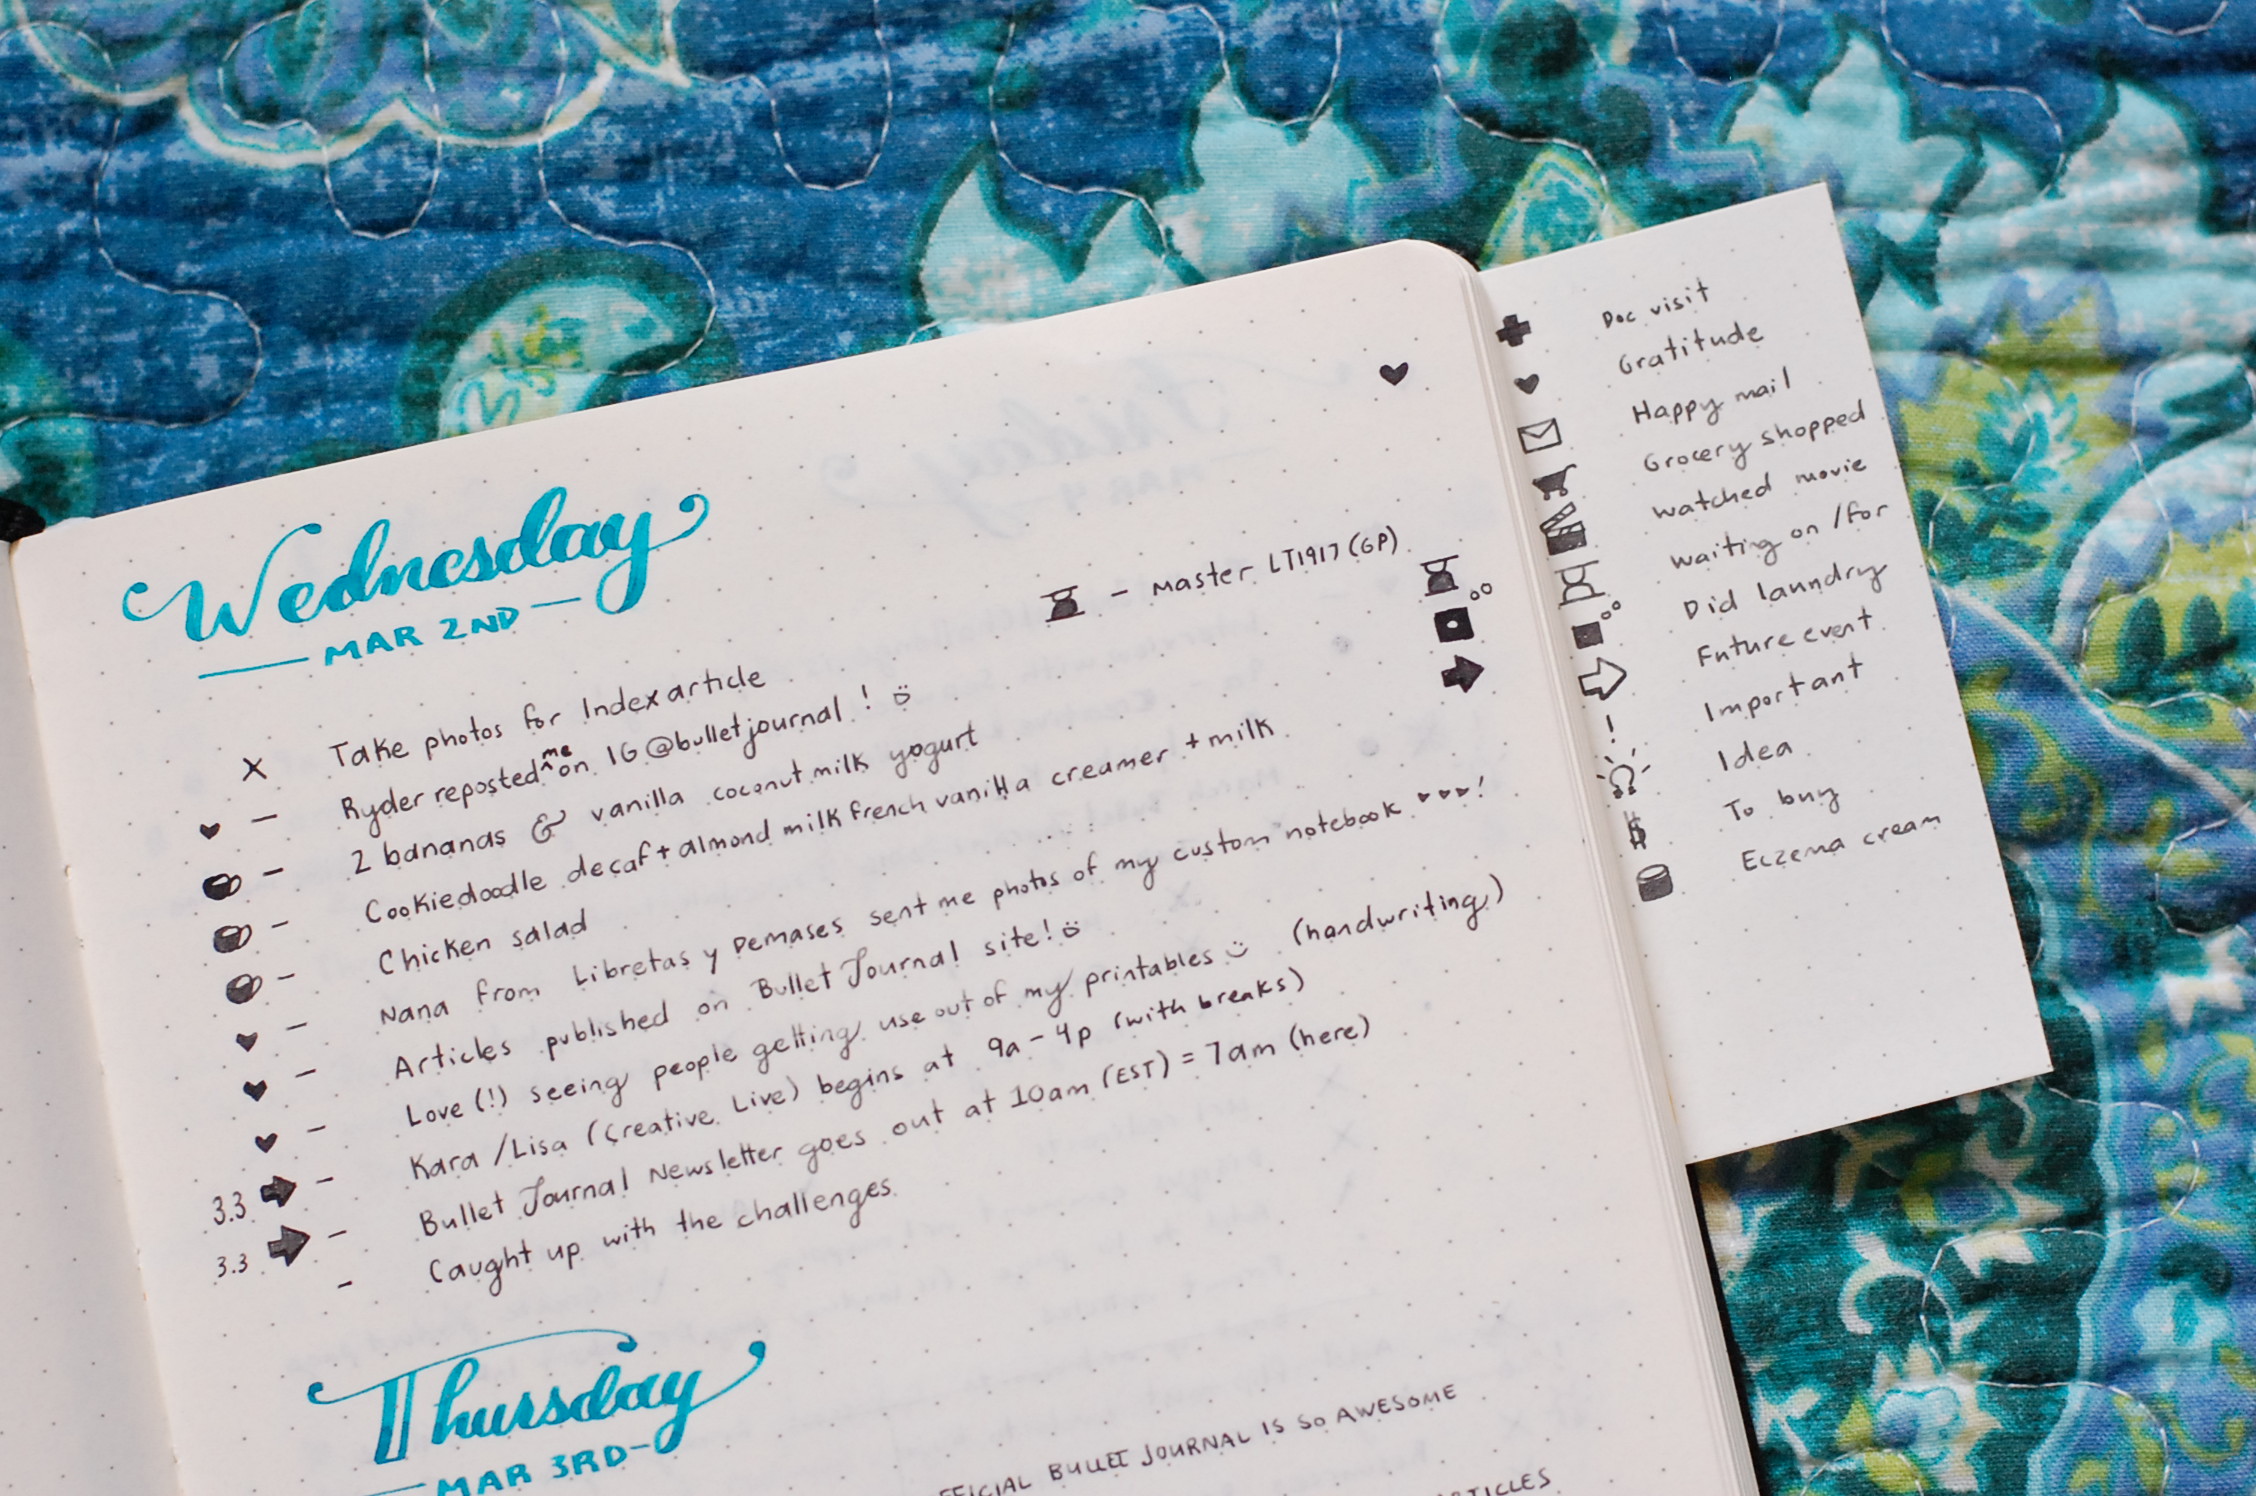 Wednesday
MAR 2ND
- Master LT1917 (GP)
x Take photos for Index article
- Ryder reposted me on IG @bulletjournal!
- 2 bananas & vanilla coconut milk yogurt
- Cookiedoodle decaf + almond milk french vanilla creamer + milk
- Chicken salad
- Nana from Libretas y Demases sent me photos of my custom notebook !
- Articles published on Bullet Journal site!
- Love (!) seeing people getting use out of my printables (handwriting)
3.3 - Kara/Lisa (Creative Live) begins at 9a - 4p (with breaks)
3.3 - Bullet Journal Newsletter goes out at 10am (EST) = 7am (here)
- Caught up with the challenges
Thursday
MAR 3RD
BULLET JOURNAL IS SO AWESOME
Doc visit
Gratitude
Happy mail
Grocery shopped
Watched movie
Waiting on/for
Did laundry
Future event
! Important
Idea
$ To buy
Eczema cream